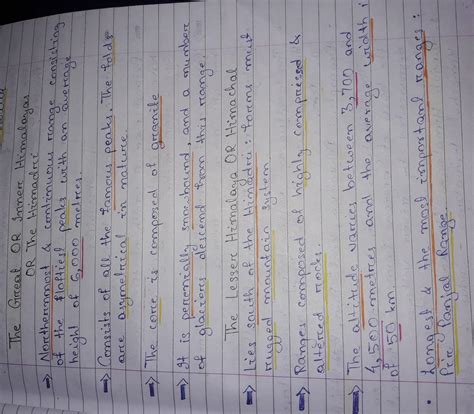 The Great OR Inner Himalayas
OR The Himadri
→ Northernmost & continuous range consisting
of the loftiest peaks with an average
height of 6,000 metres.
→ Consists of all the famous peaks. The folds
are asymetrical in nature.
→ The core is composed of granite
→ It is perennially snowbound, and a number
of glaciers descend from this range.
The Lesser Himalaya OR Himachal
→ Lies south of the Himadri: forms must
rugged mountain system
→ Ranges composed of highly compressed &
altered rocks.
→ The altitude varies between 3,700 and
4,500 metres and the average width
of 50 km
• Longest & the most important ranges:
Pir Panjal Range